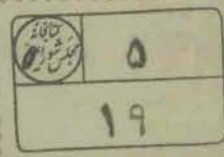 کتابخانه
مجلس شورای
۵
۱۹